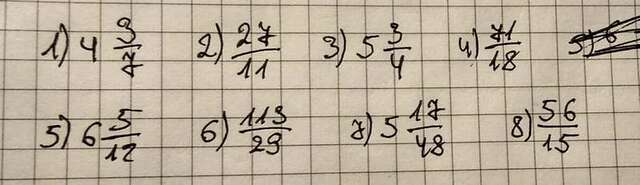 1) 4 3/7 2) 27/11 3) 5 3/4 4) 71/18
5) 6 5/12 6) 113/29 7) 5 17/48 8) 56/15